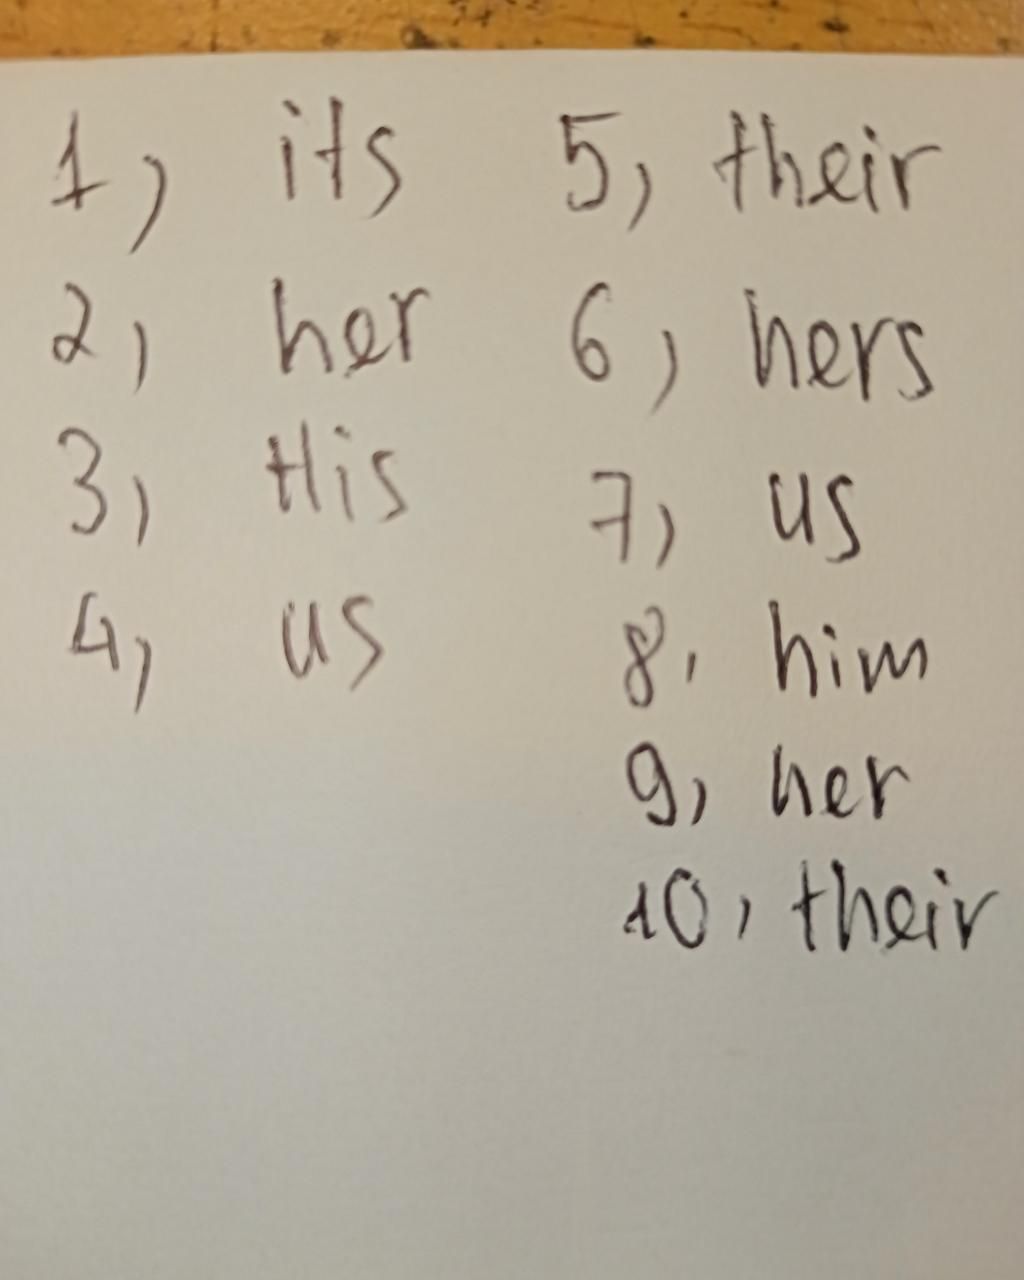 1, its
2, her
3, His
4, us
5, their
6, hers
7, us
8, him
9, her
10, their